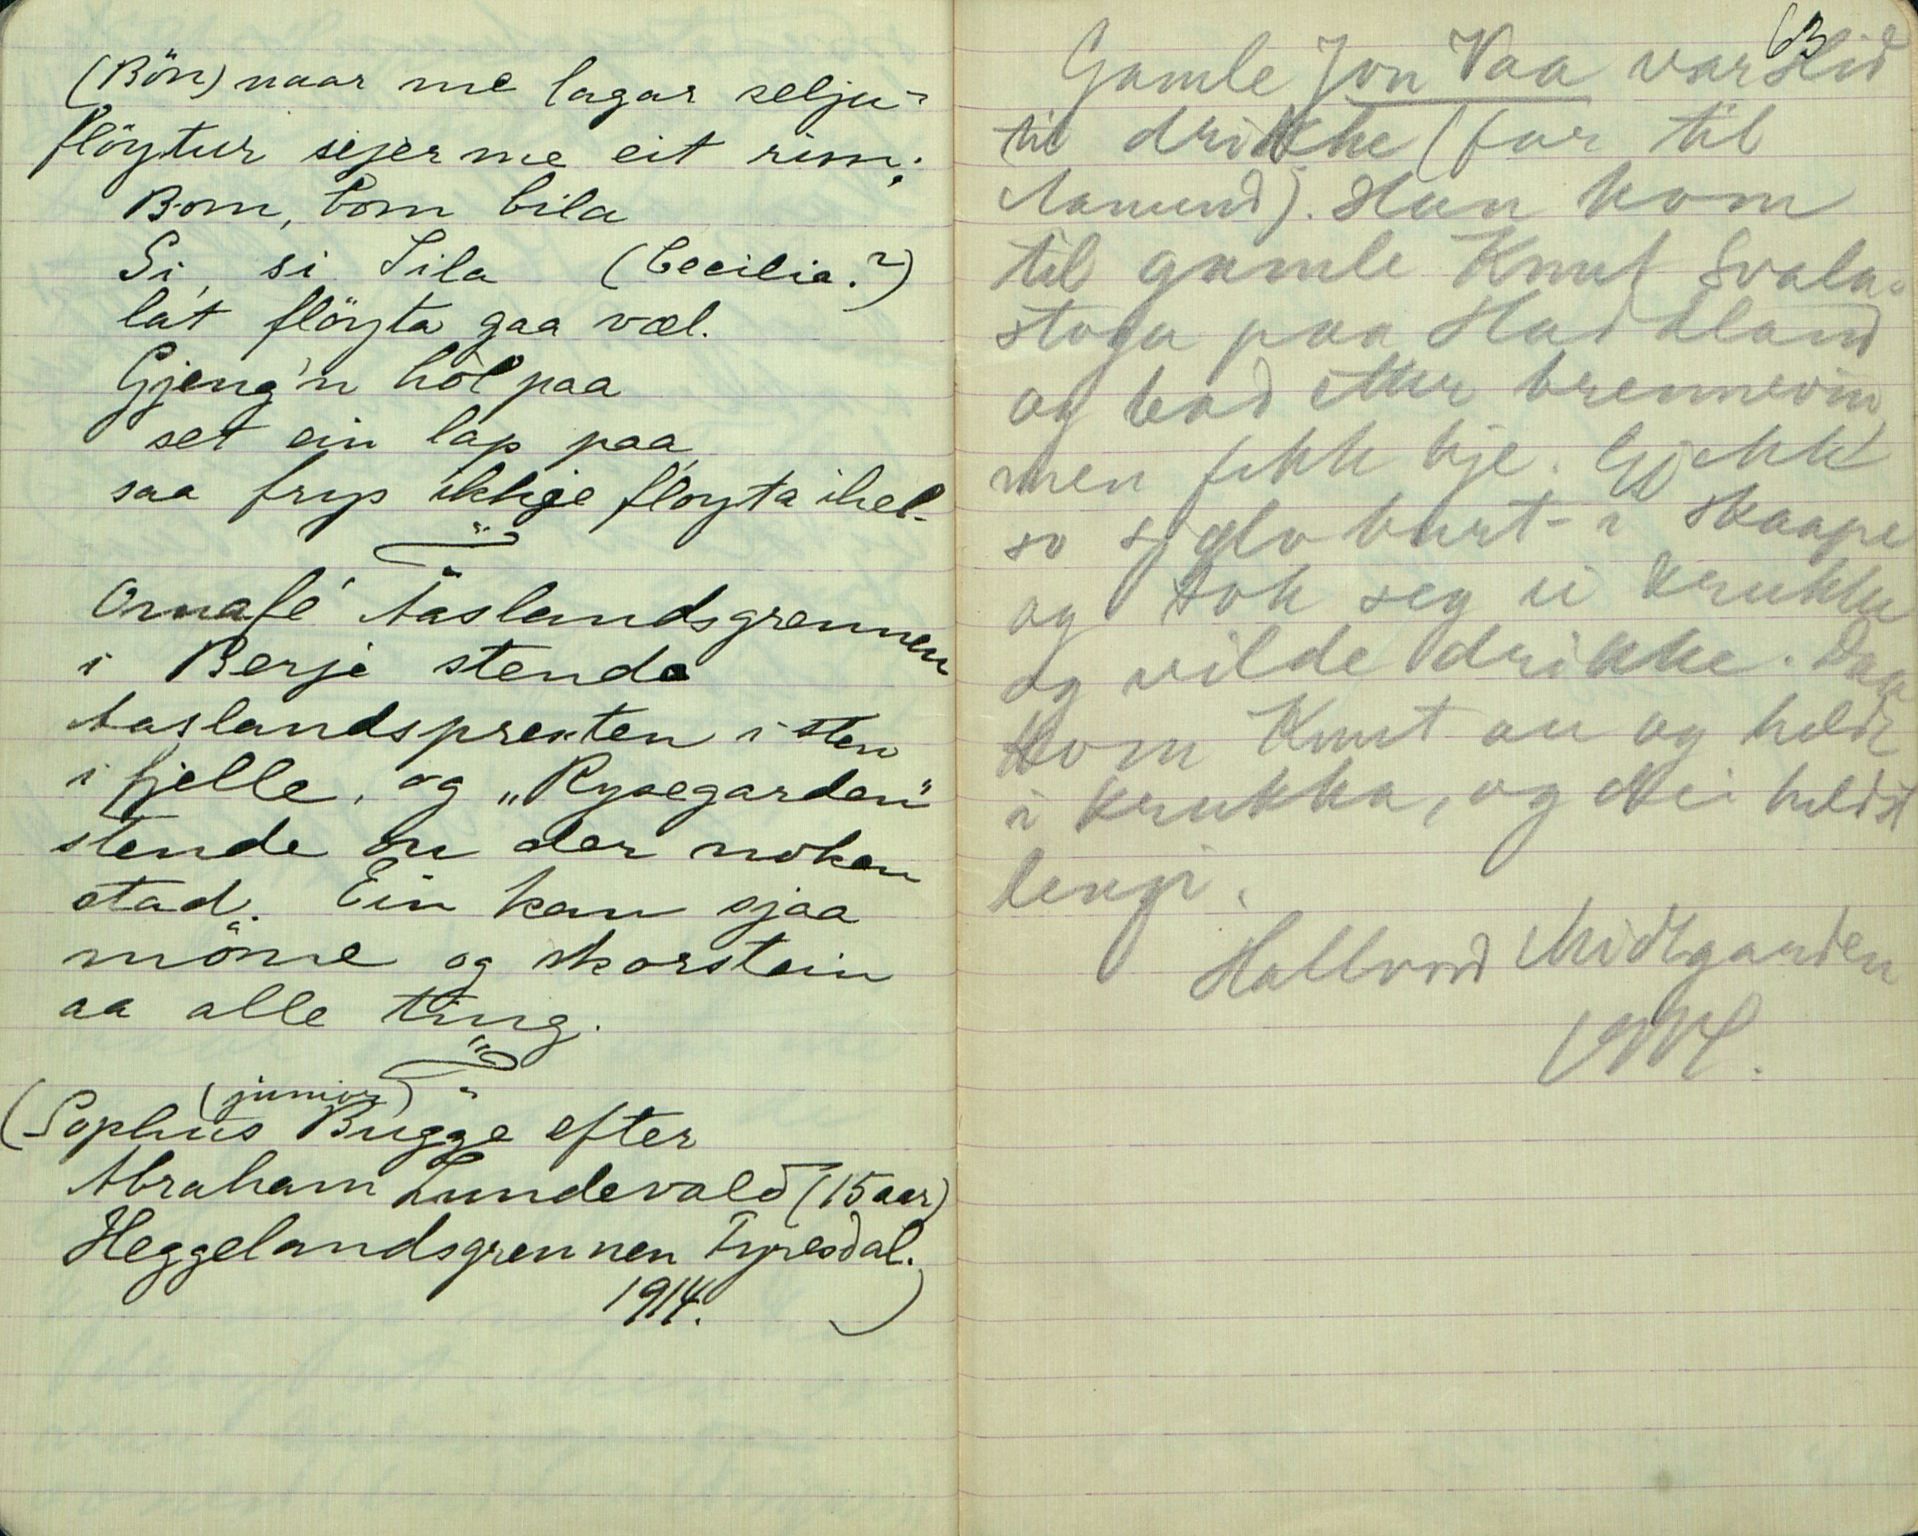 (Bön) naar me lagar selju-
flöytur sejer me eit rim:
Bom, bom bila
Si, si Sila (Cecilia?)
lat flöyta gaa væl.
Gjeng'n hòl paa
set ein lap paa,
saa frys ikkje flöyta ihel.
Ornafé Aaslandsgrennen
i Berje stende
Aaslandspresten i sten
i fjelle, og „Rysegarden"
stende no der noken
stad. Ein kan sjaa
möne og skorstein
aa alle ting.
(junior)
(Sophus Bugge efter
Abraham Lundevald (15 aar)
Heggelandsgrennen Fyresdal.
1914. )
63
Gamle Jon Vaa var slid
til drikke (far til
Aamund). Han kom
til gamle Knut Svala-
stoga paa Haddland
og bad etter brennevin,
men fekk kje. Gjekk
so sjølv burt i skaape
og tok seg ei krukke
og vilde drikke. Daa
kom Knut au og heldt
i krukka, og dei heldt
lengi.
Hallvord Midtgarden
VM.